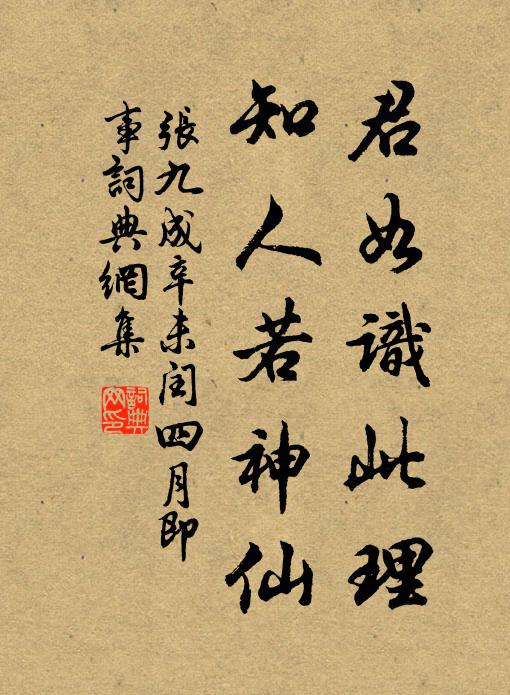 君如識此理
知人若神仙
張九成辛未閏四月即
事詞典網集
詞典
网印